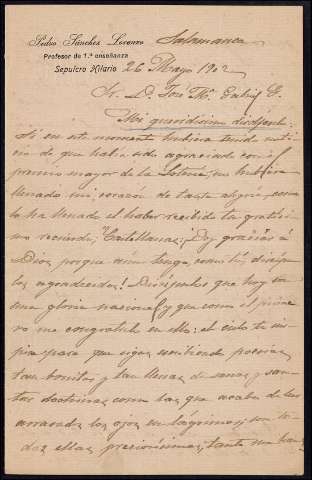 Pedro Sánchez Lorenzo Salamanca
Profesor de 1.ª enseñanza
Sepulcro Hilario 26 Mayo 1902
Sr. D. Jose M.ª Gabriel G.
Mi queridísimo discípulo:
Si en este momento hubiera tenido noti-
cia de que había sido agraciado con el
premio mayor de la Lotería, no hubiera
llenado mi corazón de tanta alegría, como
lo ha llenado el haber recibido tu gratísi-
mo recuerdo, "Castellanas". ¡Doy gracias á
Dios, porque aún tengo, como tú, discípu-
los agradecidos! Discípulos que hoy son
una gloria nacional, y que como el prime-
ro me congratulo en ello: el cielo te ins-
pire para que sigas escribiendo poesías
tan bonitas y tan llenas de sanas y san-
tas doctrinas como las que acabo de leer
arrasados los ojos en lágrimas; son to-
das ellas preciosísimas, tanto me han